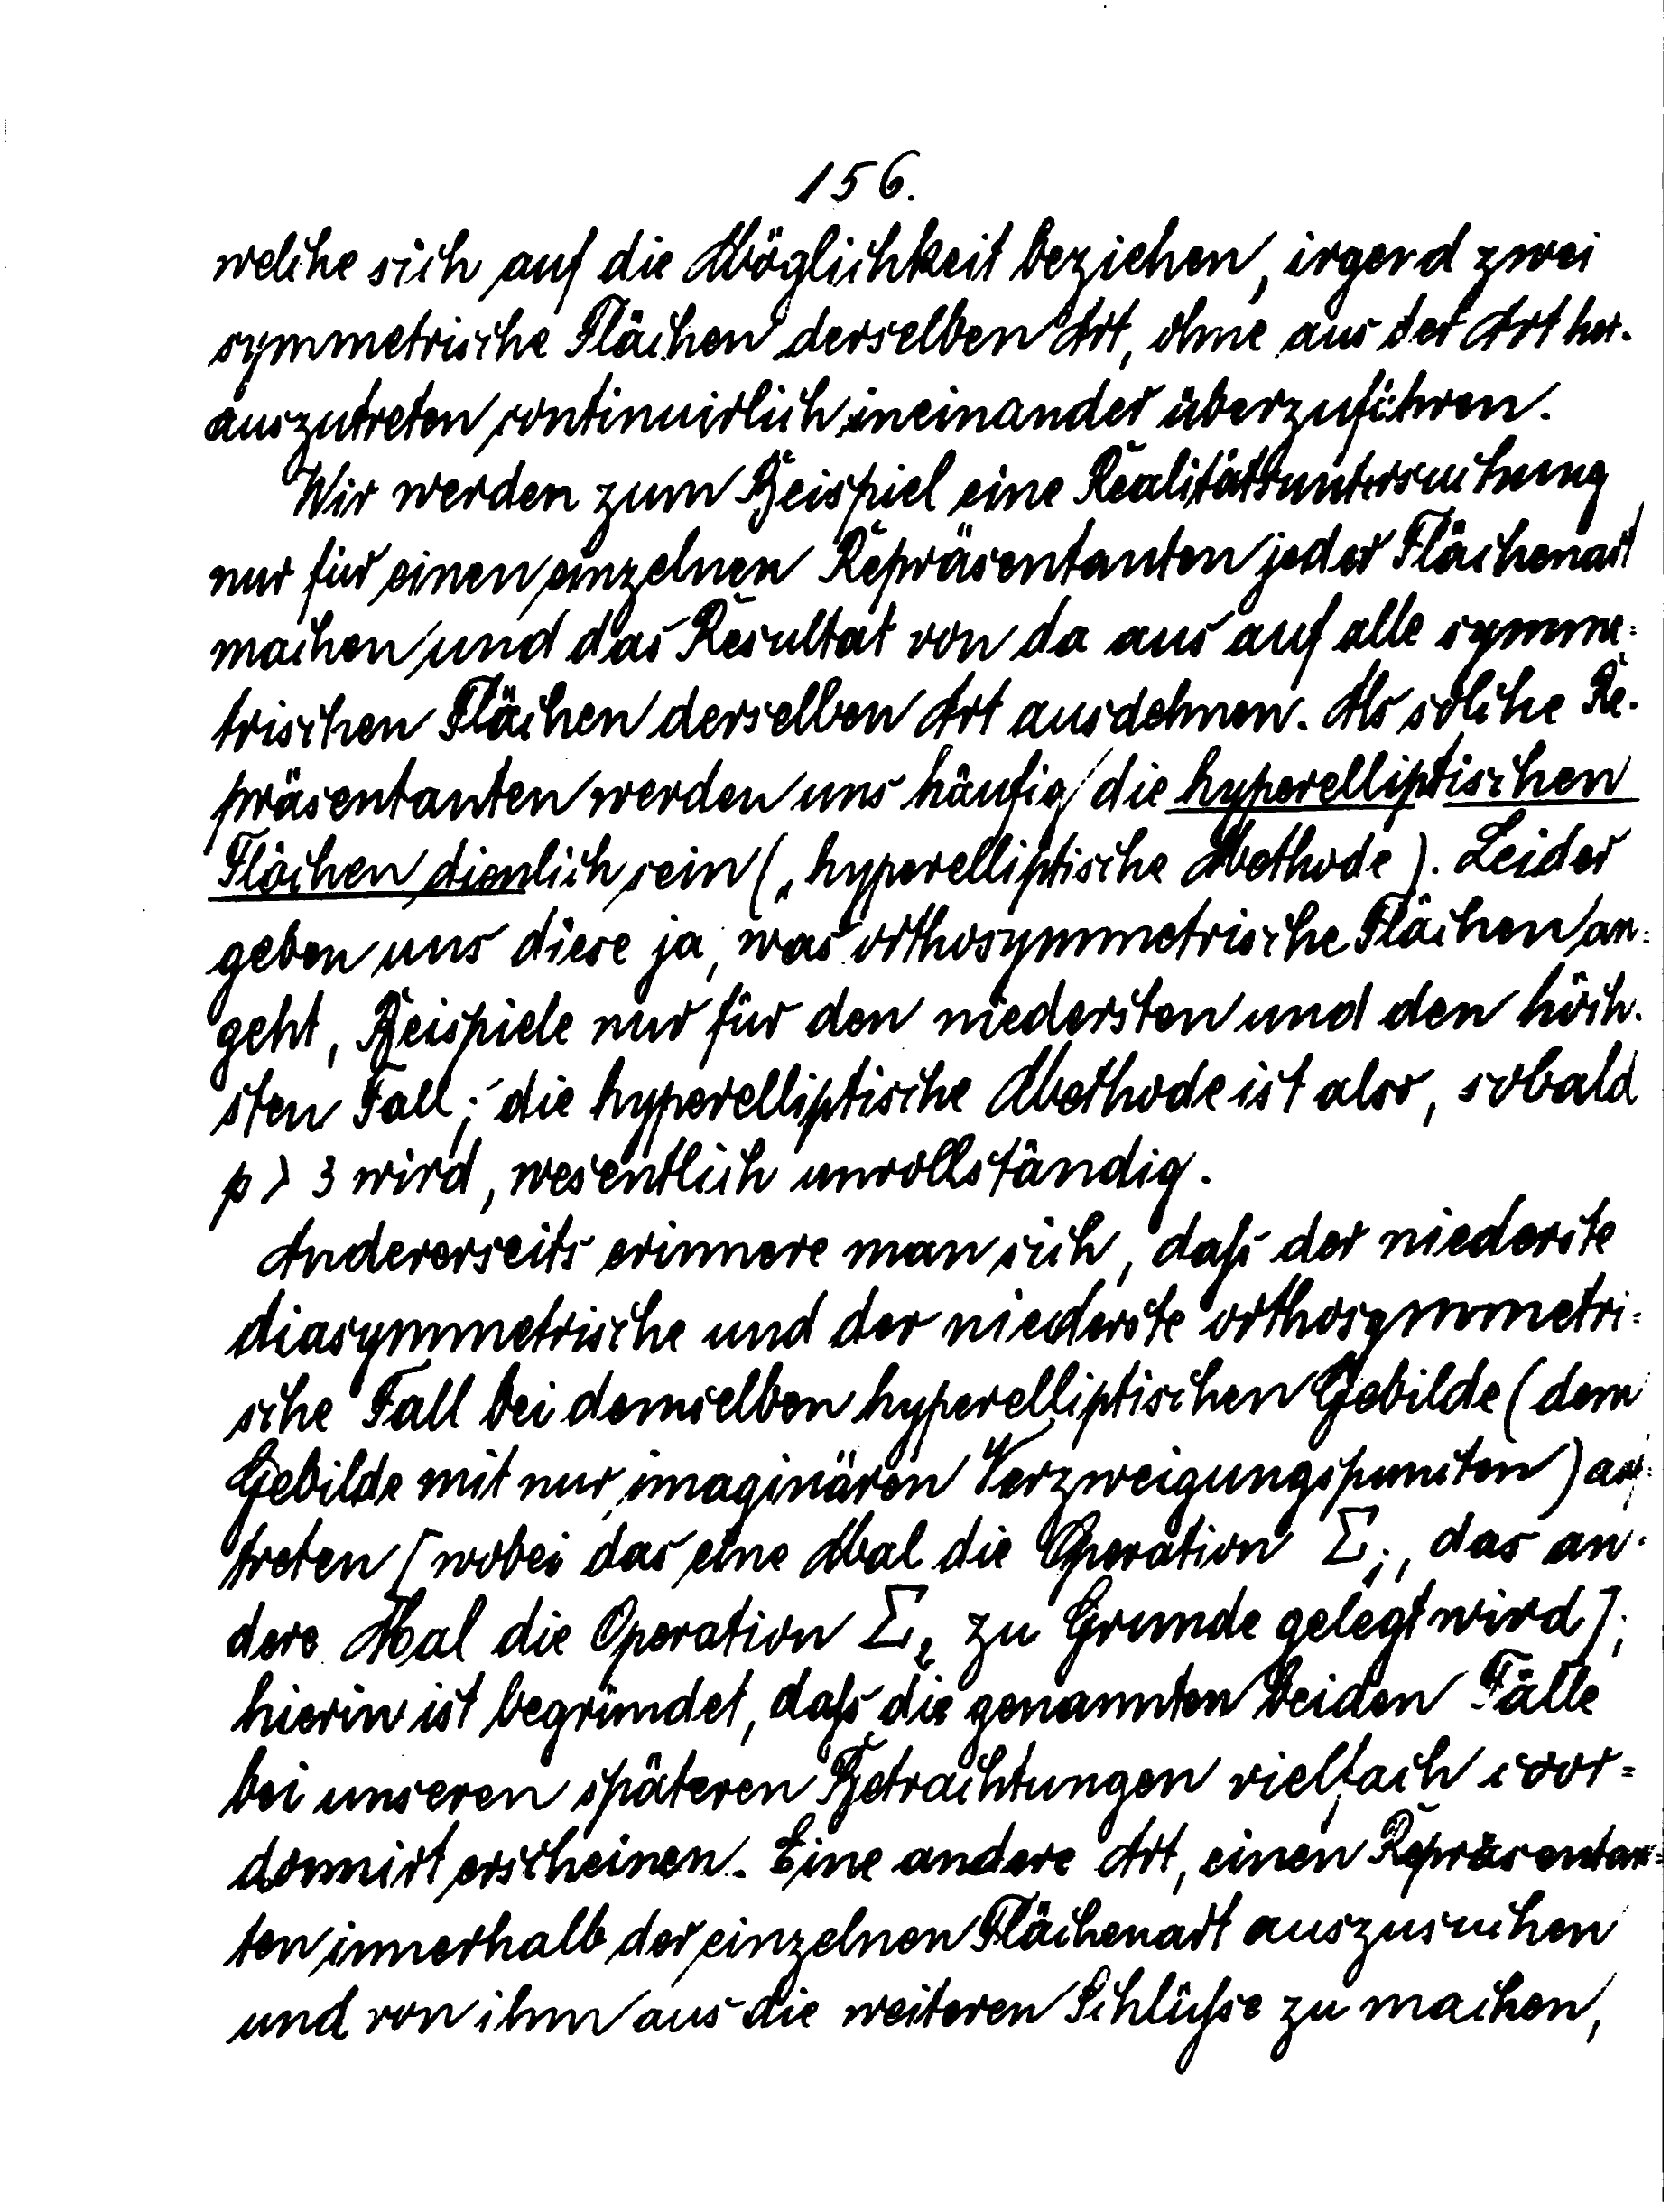 156.
welche sich auf die Möglichkeit beziehen, irgend zwei
symmetrische Flächen derselben Art, ohne aus der Art her-
auszutreten continuirlich ineinander überzuführen.
Wir werden zum Beispiel eine Realitätsuntersuchung
nur für einen einzelnen Repräsentanten jeder Flächenart
machen und das Resultat von da aus auf alle symme=
trischen Flächen derselben Art ausdehnen. Als solche Re-
präsentanten werden uns häufig die hyperelliptischen
Flächen dienlich sein („hyperelliptische Methode). Leider
geben uns diese ja, was orthosymmetrische Flächen an=
geht, Beispiele nur für den niedersten und den höch-
sten Fall; die hyperelliptische Methode ist also, sobald
p > 3 wird, wesentlich unvollständig.
Andererseits erinnere man sich, daß der niederste
diasymmetrische und der niederste orthosymmetri=
sche Fall bei demselben hyperelliptischen Gebilde (dem
Gebilde mit nur imaginären Verzweigungspuncten) auf=
treten [wobei das eine Mal die Operation Σ₁, das an-
dere Mal die Operation Σ₂ zu Grunde gelegt wird];
hierin ist begründet, daß die genannten beiden Fälle
bei unseren späteren Betrachtungen vielfach coor=
donnirt erscheinen. Eine andere Art, einen Repräsentan=
ten innerhalb der einzelnen Flächenart auszusuchen
und von ihm aus die weiteren Schlüße zu machen,